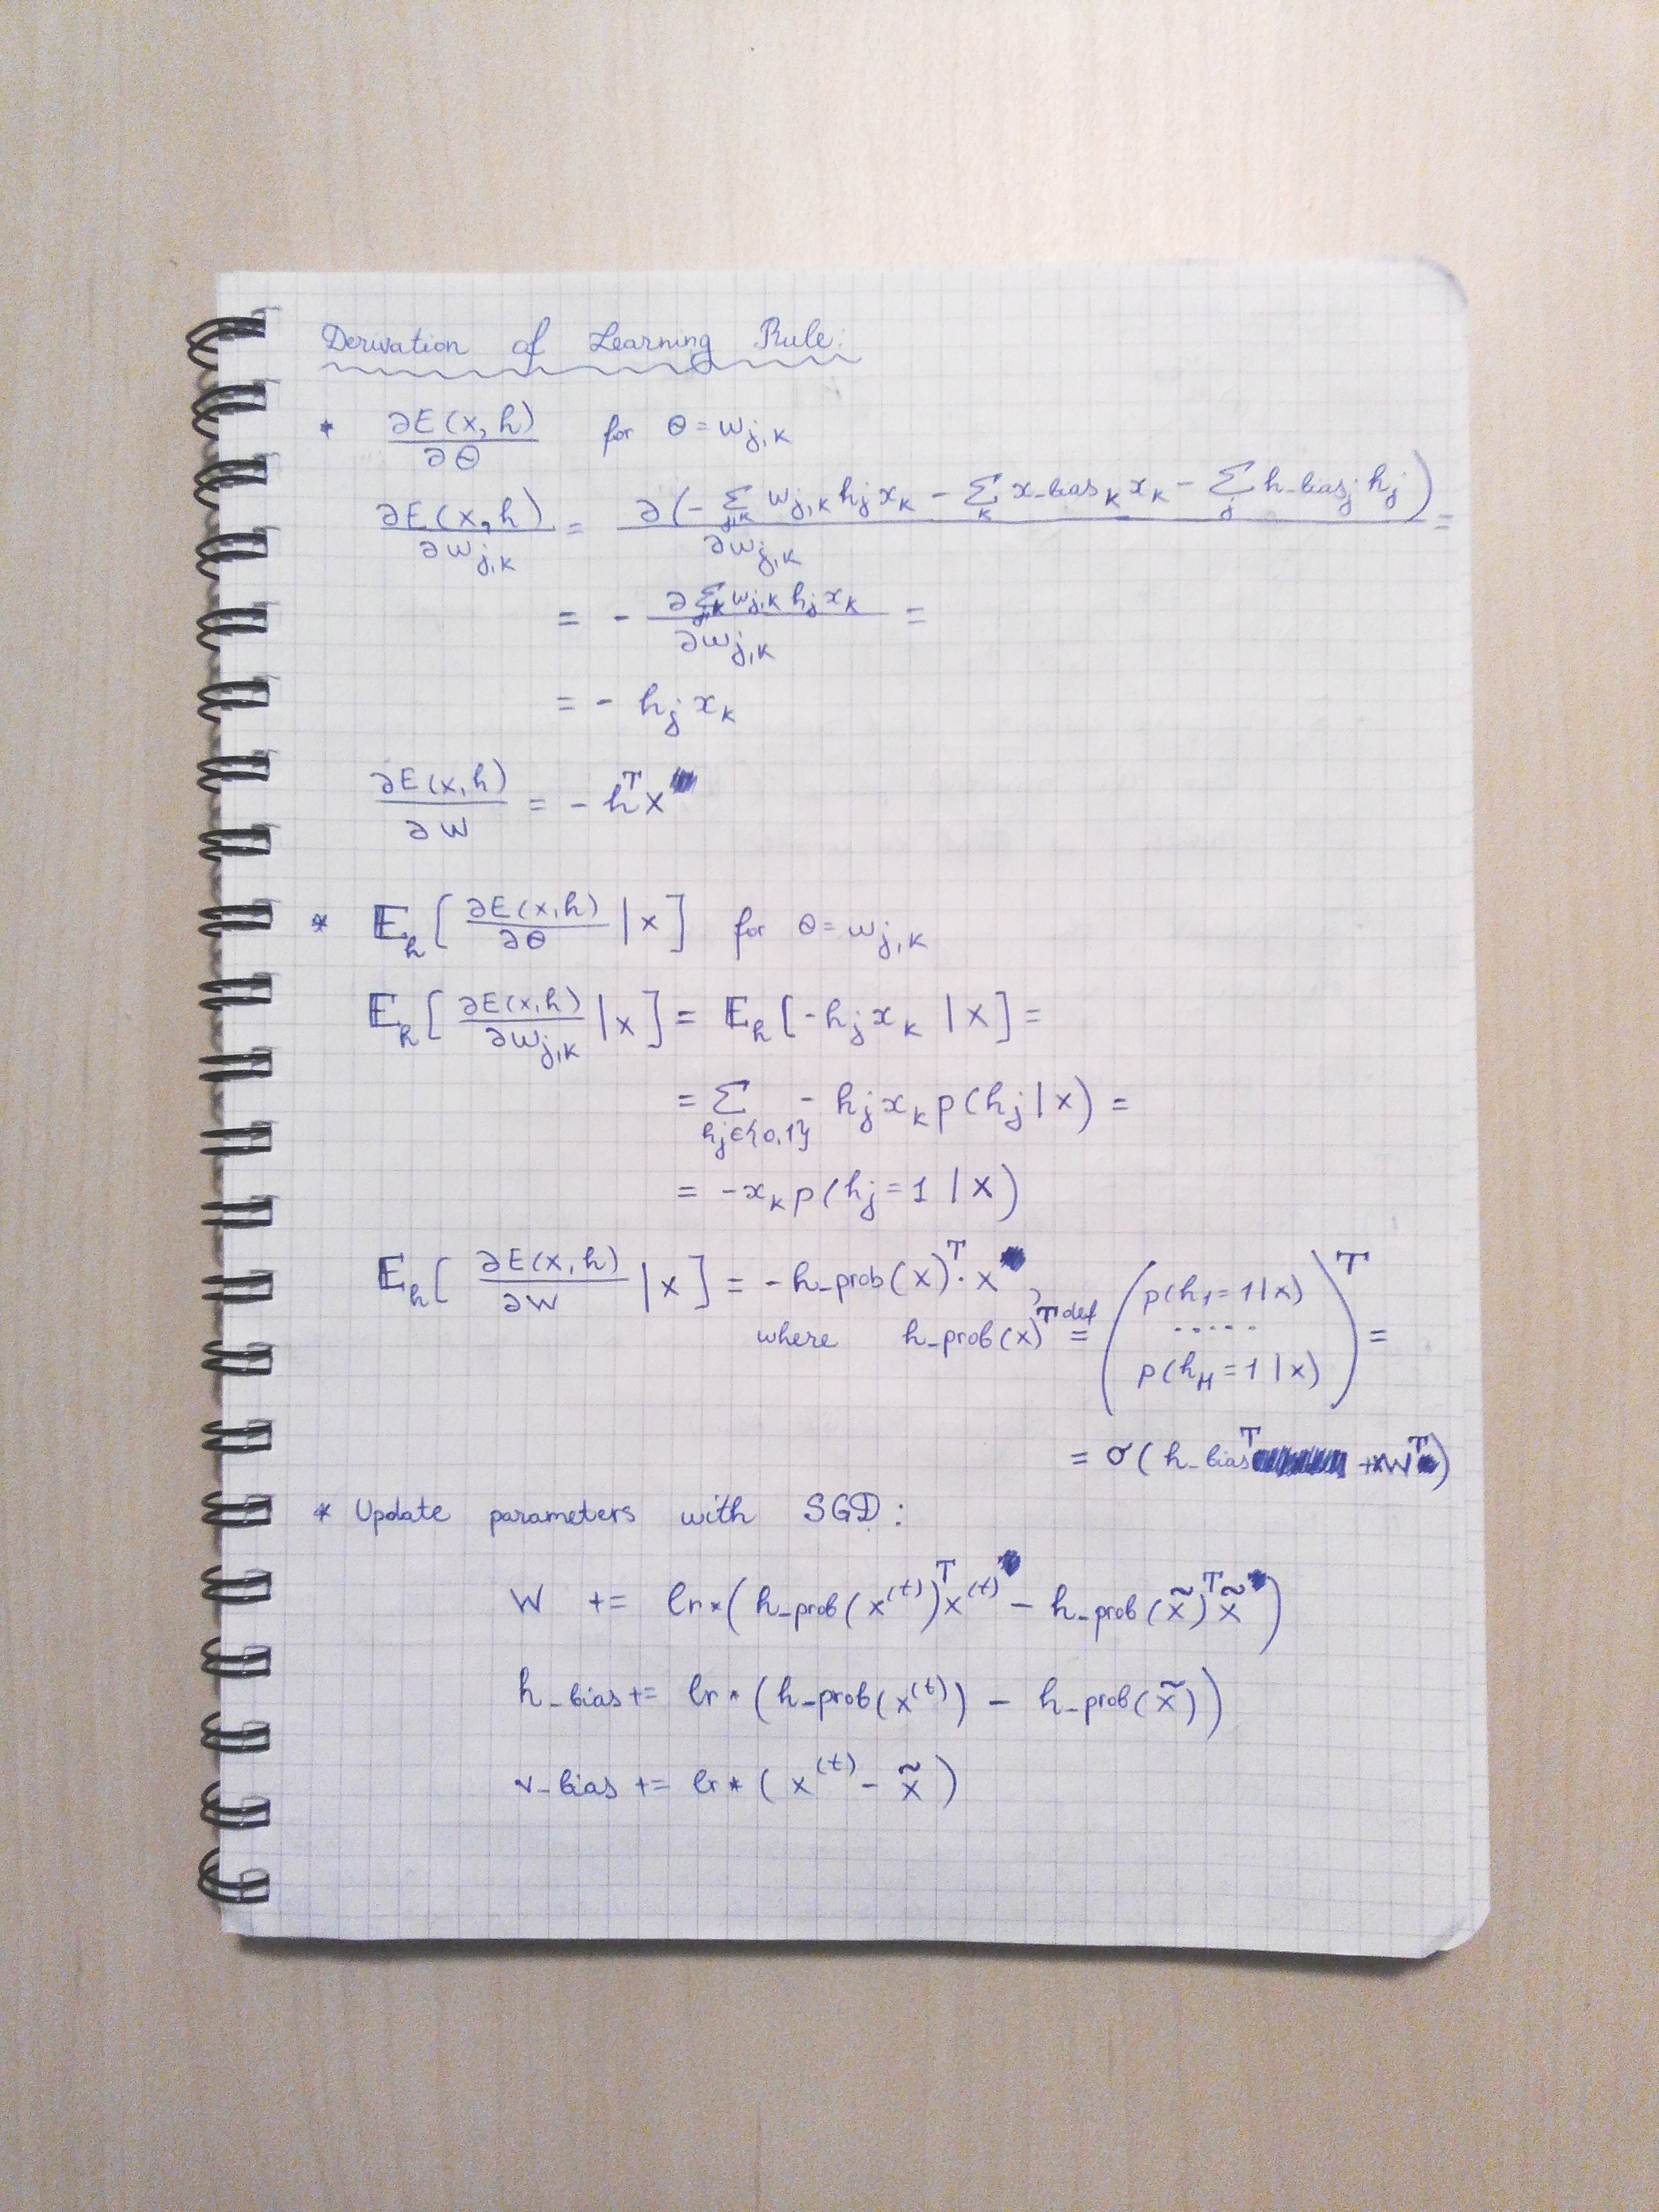 Derivation of Learning Rule:
* ∂E(x, h) / ∂θ for θ = w_{j,k}
∂E(x,h) / ∂w_{j,k} = ∂(- Σ_{j,k} w_{j,k} h_j x_k - Σ_k x_bias_k x_k - Σ_j h_bias_j h_j) / ∂w_{j,k} =
= - ∂Σ_{j,k} w_{j,k} h_j x_k / ∂w_{j,k} =
= - h_j x_k
∂E(x,h) / ∂W = - h^T x
* E_h [ ∂E(x,h) / ∂θ | x ] for θ = w_{j,k}
E_h [ ∂E(x,h) / ∂w_{j,k} | x ] = E_h [ -h_j x_k | x ] =
= Σ_{h_j∈{0,1}} - h_j x_k p(h_j | x) =
= -x_k p(h_j = 1 | x)
E_h [ ∂E(x,h) / ∂W | x ] = - h_prob(x)^T · x ,
where h_prob(x)^T =^{def} ( p(h_1 = 1 | x) ..... p(h_H = 1 | x) )^T =
= σ( h_bias^T + xW^T )
* Update parameters with SGD:
W += lr * ( h_prob(x^(t))^T x^(t) - h_prob(x̃)^T x̃ )
h_bias += lr * ( h_prob(x^(t)) - h_prob(x̃) )
v_bias += lr * ( x^(t) - x̃ )